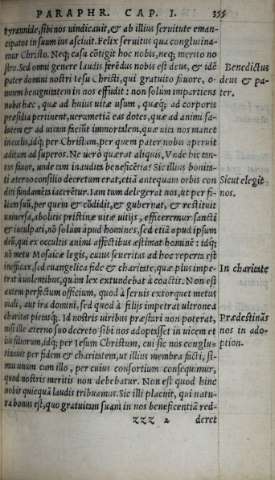 PARAPHR. CAP. I. 355
tyrannide, sibi nos uindicauit, & ab illius seruitute eman-
cipatos in suum ius asciuit. Felix seruitus qua conglutina-
mur Christo. Neq; casu cōtigit hoc nobis, neq; merito no
stro. Sed omni genere laudis ferēdus nobis est deus, & idē
Benedictus
pater domini nostri Iesu Christi, qui gratuito fauore, o-
deus & pa-
mnem benignitatem in nos effudit: non solum impartiens
ter.
nobis hæc, quæ ad huius uitæ usum, quæq; ad corporis
præsidia pertinent, uerumetiā eas dotes, quæ ad animi sa-
lutem & ad uitam faciūt immortalem, quæ uita nos manet
in cœlo, idq; per Christum, per quem pater nobis aperuit
aditum ad superos. Ne uerò quærat aliquis, unde hic tan-
tus fauor, unde tam inaudita beneficētia? Sic illius bonita-
ti æterno consilio decretum erat, etiā antequàm orbis con
Sicut elegit
diti fundamēta iacerētur. Iam tum delegerat nos, ut per fi-
nos.
lium suū, per quem & cōdidit, & gubernat, & restituit
uniuersa, abolitis pristinæ uitæ uitijs, efficeremur sancti
& inculpati, nō solùm apud homines, sed etiā apud ipsum
deū, qui ex occultis animi affectibus æstimat hominē: idq;
nō metu Mosaicæ legis, cuius seueritas ad hoc reperta est
inefficax, sed euangelica fide & charitate, quæ plus impe-
In charitate
trat à uolentibus, quàm lex extundebat à coactis. Non est
autem perfectum officium, quod à seruis extorquet metus
mali, aut ira domini, sed quod à filijs impetrat ultronea
charitas pietasq;. Id nostris uiribus præstari non poterat,
Prædestinās
nisi ille æterno suo decreto sibi nos adoptasset in uicem et
nos in ado-
ius filiorum, idq; per Iesum Christum, cui sic nos conglu-
ption.
tinauit per fidem & charitatem, ut illius membra facti, si-
mus unum cum illo, per cuius consortium consequimur,
quod nostris meritis non debebatur. Non est quod hinc
nobis quicquā laudis tribuamus. Sic illi placuit, qui natu-
ra bonus est, quo gratuitam suam in nos beneficentiā red-
zzz 2 deret